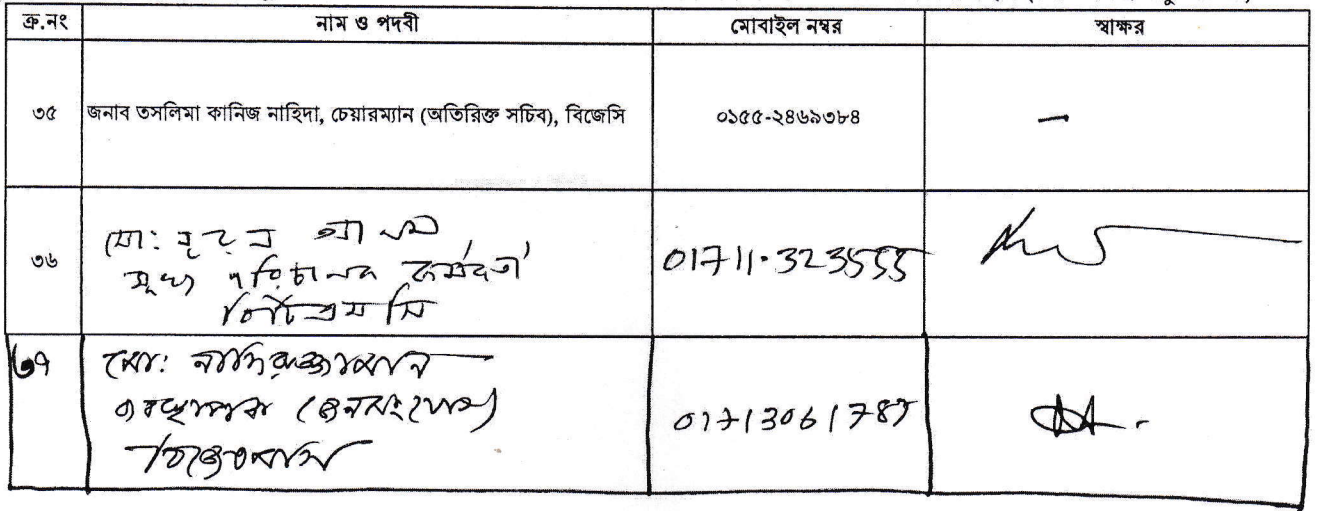 ক্র.নং নাম ও পদবী মোবাইল নম্বর স্বাক্ষর
৩৫ জনাব তসলিমা কানিজ নাহিদা, চেয়ারম্যান (অতিরিক্ত সচিব), বিজেসি ০১৫৫-২৪৬৯৩৮৪ -
মো:
৩৬ পরিচালন কর্মকর্তা 01711.323555
৩৭ মো: নাসিরুজ্জামান
ব্যবস্থাপক (জনসংযোগ) 01713061787
বিজেএমসি